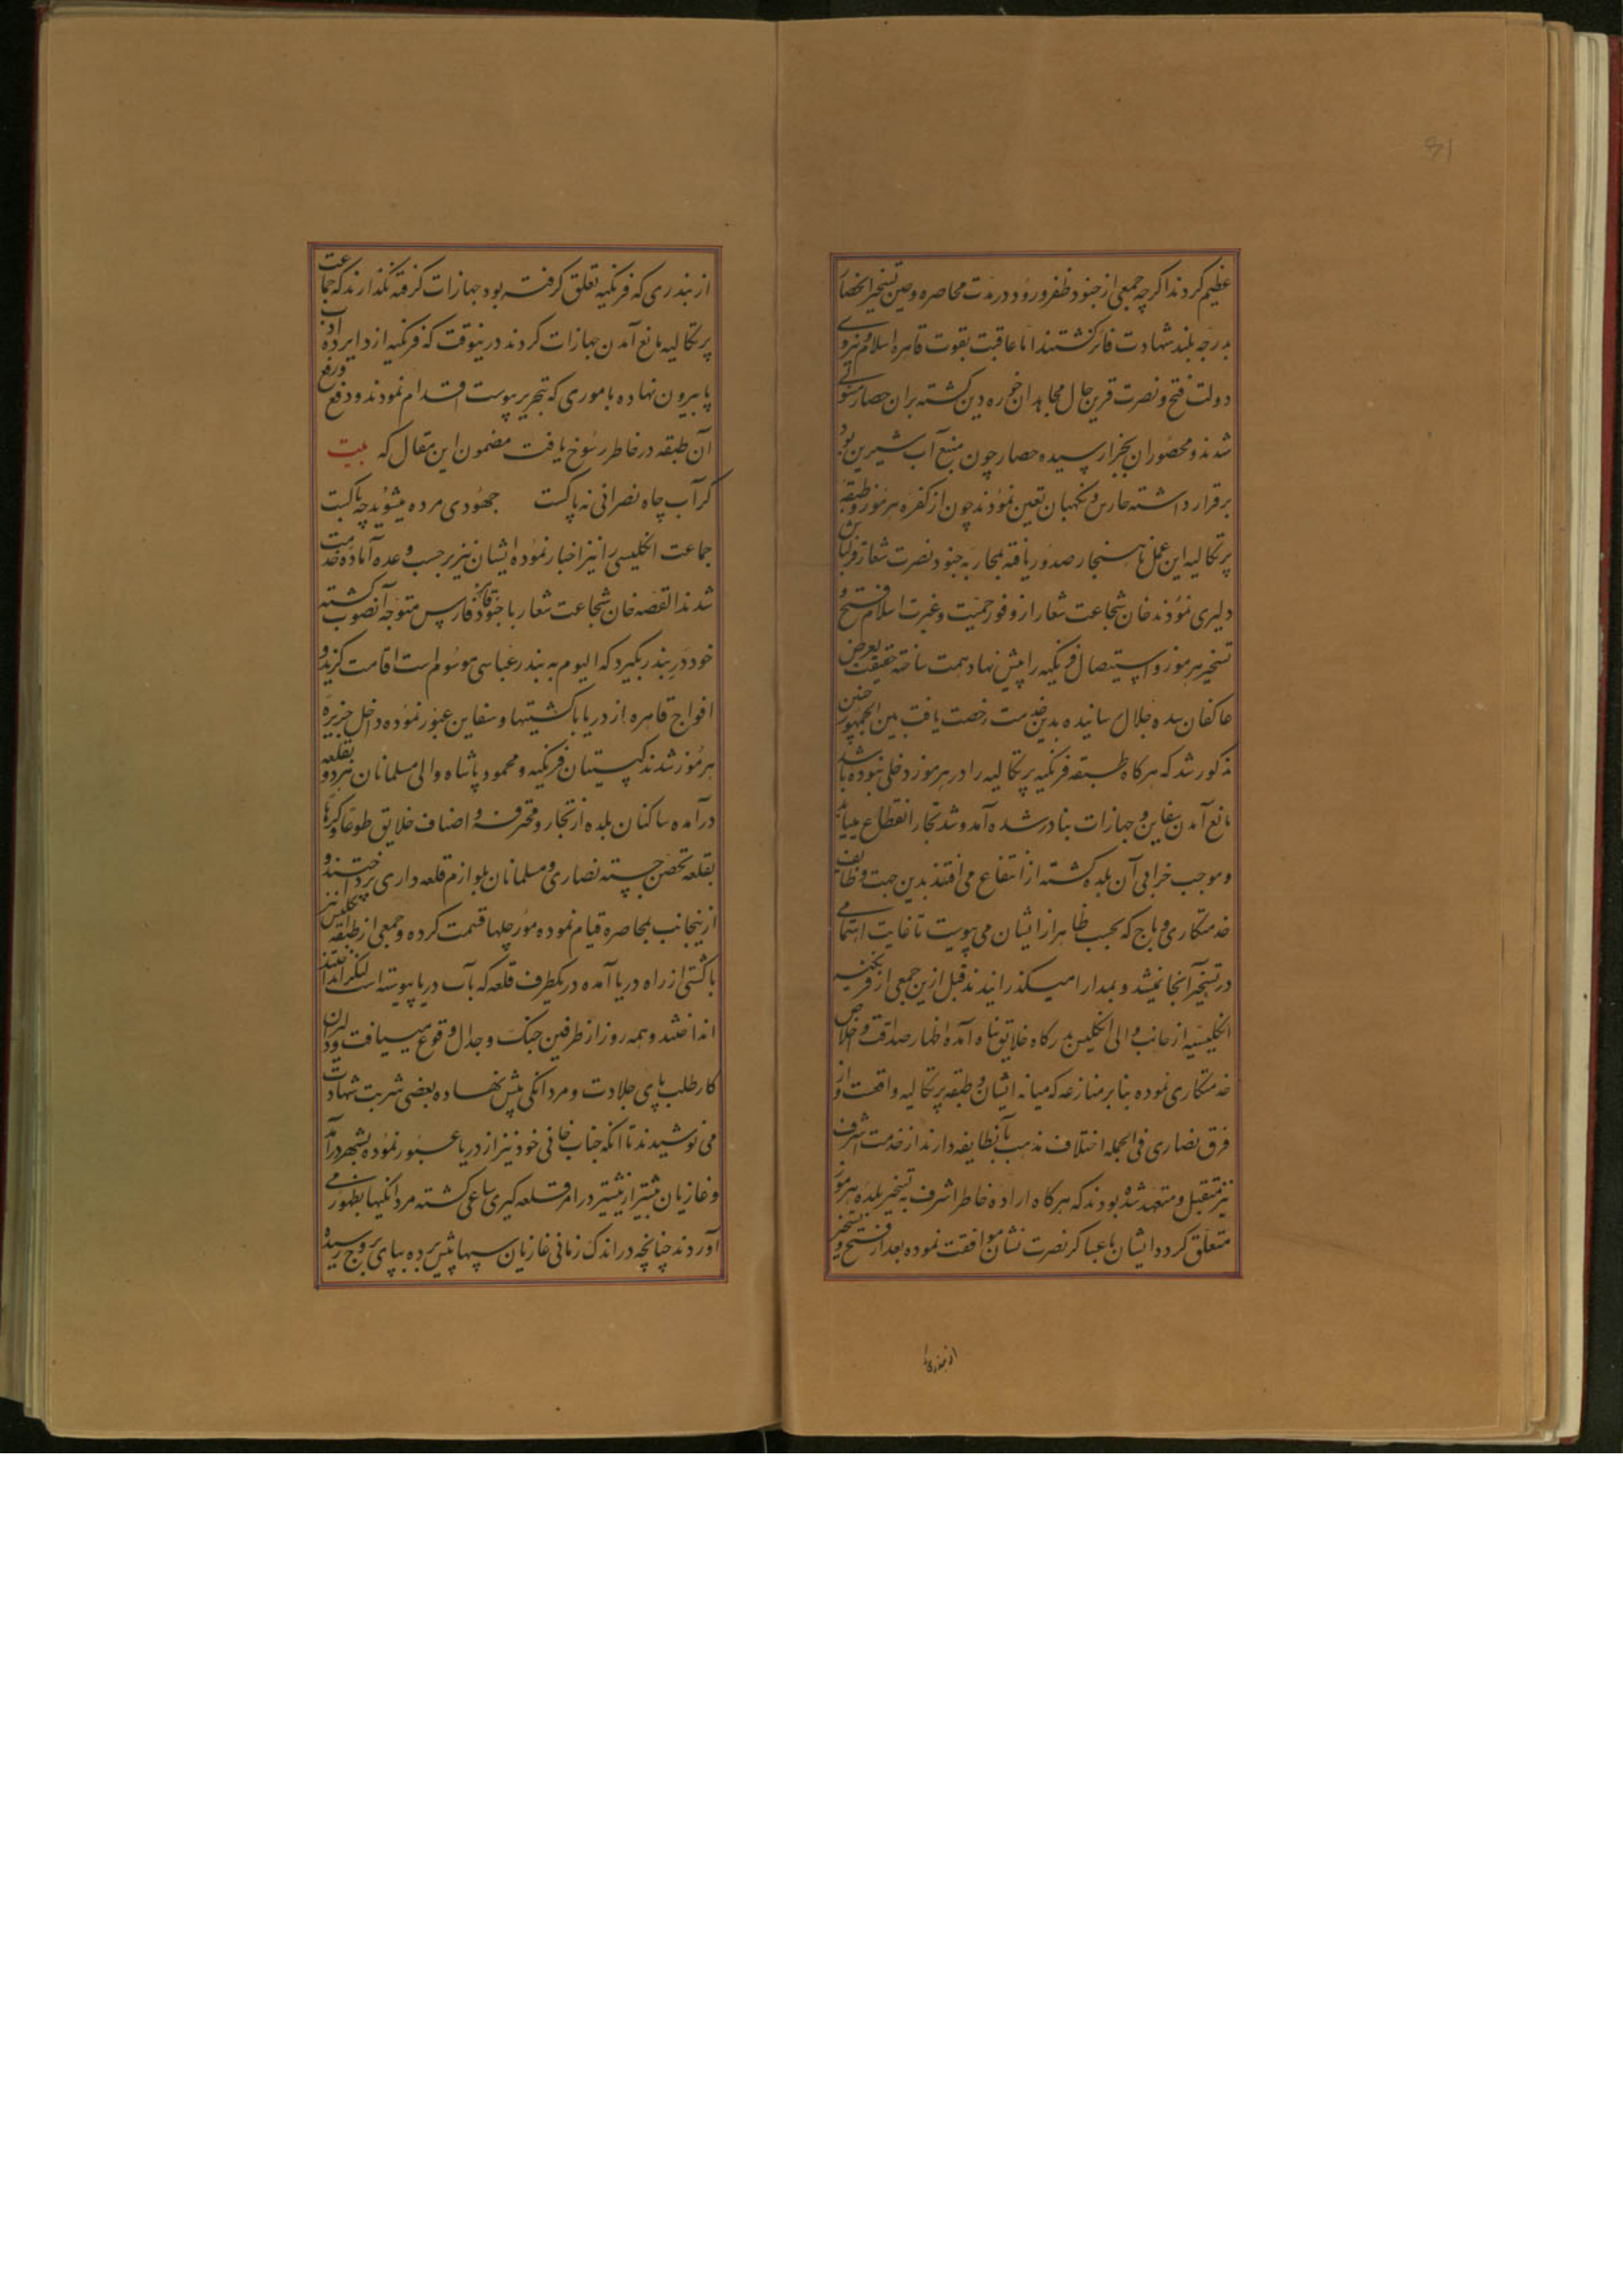 عظیم کردند اکرچه جمعی از جنود ظفر ورود در مدت محاصره و حین تسخیر انحصار
بدرجه بلند شهادت فائز کشتند اما عاقبت بقوت قاهره اسلام و نیروی
دولت فتح و نصرت قرین حال مجاهدان خجره دین کشته بران حصار مستولی
شدند و محصوران بجزا رسیده حصار چون منبع آب شیرین بود
برقرار داشته حارس و نکهبان تعین نمودند چون از کفره هرموز و طبقهٔ
پرتکالیه این عمل ناهنجار صدور یافته بمحاربه جنود نصرت شعار قزلباش
دلیری نمودند خان شجاعت شعار از وفور حمیت و غیرت اسلام فتح و
تسخیر هرموز و استیصال فرنکیه را پیش نهاد همت ساخته حقیقت بعرض
عاکفان سده جلال رسانیده بدین خدمت رخصت یافت بین الجمهور چنین
مذکور شد که هرکاه طبقه فرنکیه پرتکالیه را در هرموز دخلی نبوده باشد
مانع آمدن سفاین و جهازات بنادر شده آمد و شد تجار انقطاع مییابد
و موجب خرابی آن بلده کشته از انتفاع می افتد بدین جهت وظایف
خدمتکاری و باج که بحسب ظاهر از ایشان می پیوست تا غایت اهتمامی
در تسخیر آنجا نمیشد و بمدارا میکذرانیدند قبل ازین جمعی از فرنکیه
انکلیسیه از جانب والی انکلیس بدرکاه خلایق پناه آمده اظهار صداقت و اخلاص
خدمتکاری نموده بنا بر منازعه که میانه ایشان و طبقه پرتکالیه واقعست و از
فرق نصاری فی الجمله اختلاف مذهب بآنطایفه دارند از خدمت اشرف
نیز متقبل و متعهد شده بودند که هرکاه ارادهٔ خاطر اشرف به تسخیر بلده هرموز
متعلق کردد ایشان با عساکر نصرت نشان موافقت نموده بعد از فتح و تسخیر
از بندری
از بندری که فرنکیه تعلق کرفته بود جهازات کرفته نکذارند که جماعت
پرتکالیه مانع آمدن جهازات کردند درینوقت که فرنکیه از دایره ادب
پا بیرون نهاده باموری که بتحریر پیوست اقدام نمودند و دفع و رفع
آن طبقه در خاطر رسوخ یافت مضمون این مقال که بیت
کر آب چاه نصرانی نه پاکست جهودی مرده میشوید چه باکست
جماعت انکلیسی را نیز اخبار نموده ایشان نیز بر حسب وعده آماده خدمت
شدند القصه خان شجاعت شعار با جنود قاهره فارس متوجه آنصوب کشته
خود در بندر بکیرد که الیوم به بندر عباسی موسوم است اقامت کزید و
افواج قاهره از دریا با کشتیها و سفاین عبور نموده داخل جزیره
هرموز شدند کپیتان فرنکیه و محمود پاشاه والی مسلمانان هر دو بقلعه
درآمده ساکنان بلده از تجار و محترفه و اصناف خلایق طوعا و کرها
بقلعه تحصن جسته نصاری و مسلمانان بلوازم قلعه داری پرداختند و
ازینجانب بمحاصره قیام نموده مورچلها قسمت کرده و جمعی از طبقه انکلیس نیز
با کشتی از راه دریا آمده در یکطرف قلعه که بآب دریا پیوسته است لنکر انداختند
انداختند و همه روز از طرفین جنک و جدال وقوع مییافت و دلیران
کارطلب پای جلادت و مردانکی پیش نهاده بعضی شربت شهادت
می نوشیدند تا انکه جناب خانی خود نیز از دریا عبور نموده بشهر درآمد
و غازیان بیشتر از پیشتر در امر قلعه کیری ساعی کشته مردانکیها بظهور می
آوردند چنانچه در اندک زمانی غازیان سپها پیش برده بپای بروج رسیده